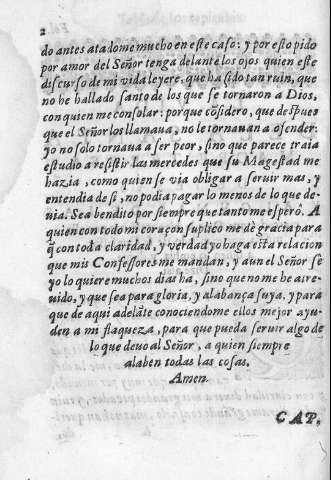 2
do antes atadome mucho en este caso: y por esto pido
por amor del Señor tenga delante los ojos quien este
discurso de mi vida leyere, que ha sido tan ruin, que
no he hallado santo de los que se tornaron a Dios,
con quien me consolar: porque cõsidero, que despues
que el Señor los llamaua, no le tornauan a ofender:
yo no solo tornaua a ser peor, sino que parece traia
estudio a resistir las mercedes que su Magestad me
hazia, como quien se via obligar a seruir mas, y
entendia de si, no podia pagar lo menos de lo que de-
uia. Sea bendito por siempre que tanto me esperò. A
quien con todo mi coraçon suplico me dè gracia para
q̃ con toda claridad, y verdad yo haga esta relacion
que mis Confessores me mandan, y aun el Señor sè
yo lo quiere muchos dias ha, sino que no me he atre-
uido, y que sea para gloria, y alabança suya, y para
que de aqui adelãte conociendome ellos mejor ayu-
den a mi flaqueza, para que pueda seruir algo de
lo que deuo al Señor, a quien siempre
alaben todas las cosas.
Amen.
CAP.